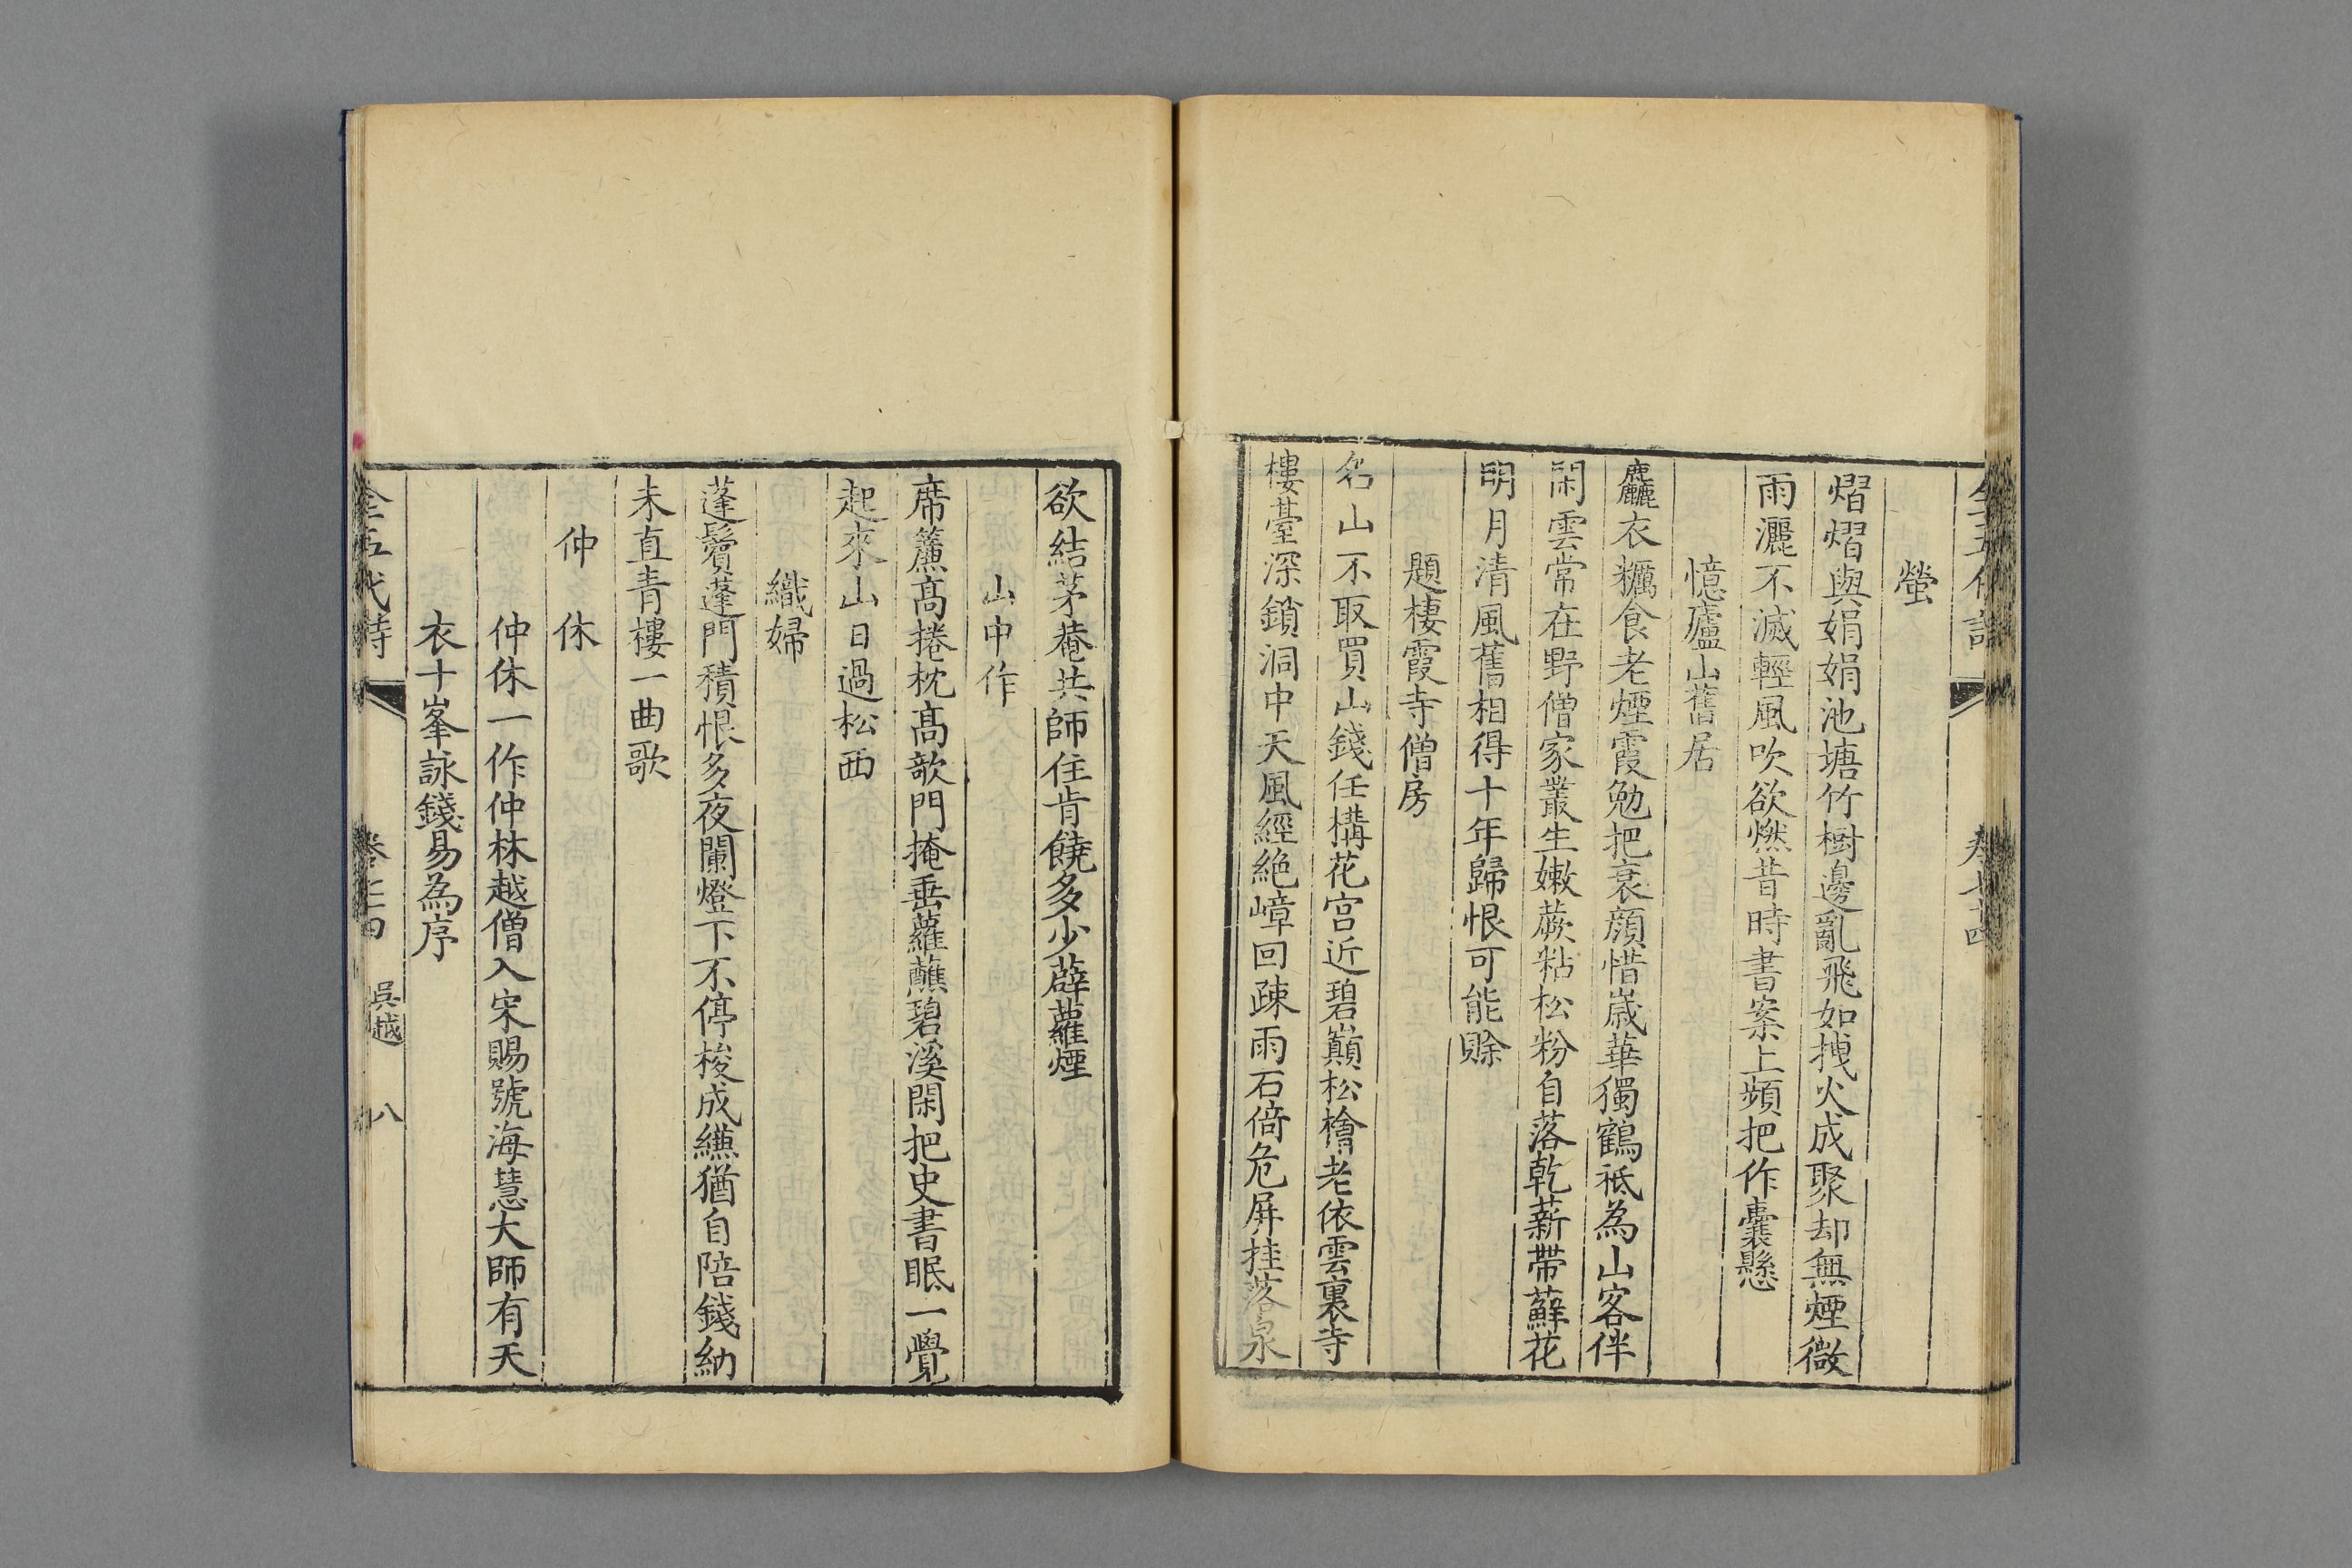 螢
熠熠與娟娟池塘竹樹邊亂飛如拽火成聚却無煙微
雨灑不滅輕風吹欲燃昔時書案上頻把作囊懸
憶廬山舊居
麤衣糲食老煙霞勉把衰顔惜嵗華獨鶴祗為山客伴
閑雲常在野僧家叢生嫩蕨粘松粉自落乾薪帶蘚花
明月清風舊相得十年歸恨可能賒
題棲霞寺僧房
名山不取買山錢任構花宫近碧巔松檜老依雲裏寺
樓臺深鎖洞中天風經絶嶂回疎雨石倚危屏挂落泉
欲結茅菴共師住肯饒多少薜蘿煙
山中作
席簾高捲枕高欹門掩垂蘿蘸碧溪閑把史書眠一覺
起來山日過松西
織婦
蓬鬢蓬門積恨多夜闌燈下不停梭成縑猶自陪錢納
未直青樓一曲歌
仲休
仲休一作仲林越僧入宋賜號海慧大師有天
衣十峯詠錢易為序
全五代詩
吳越
八